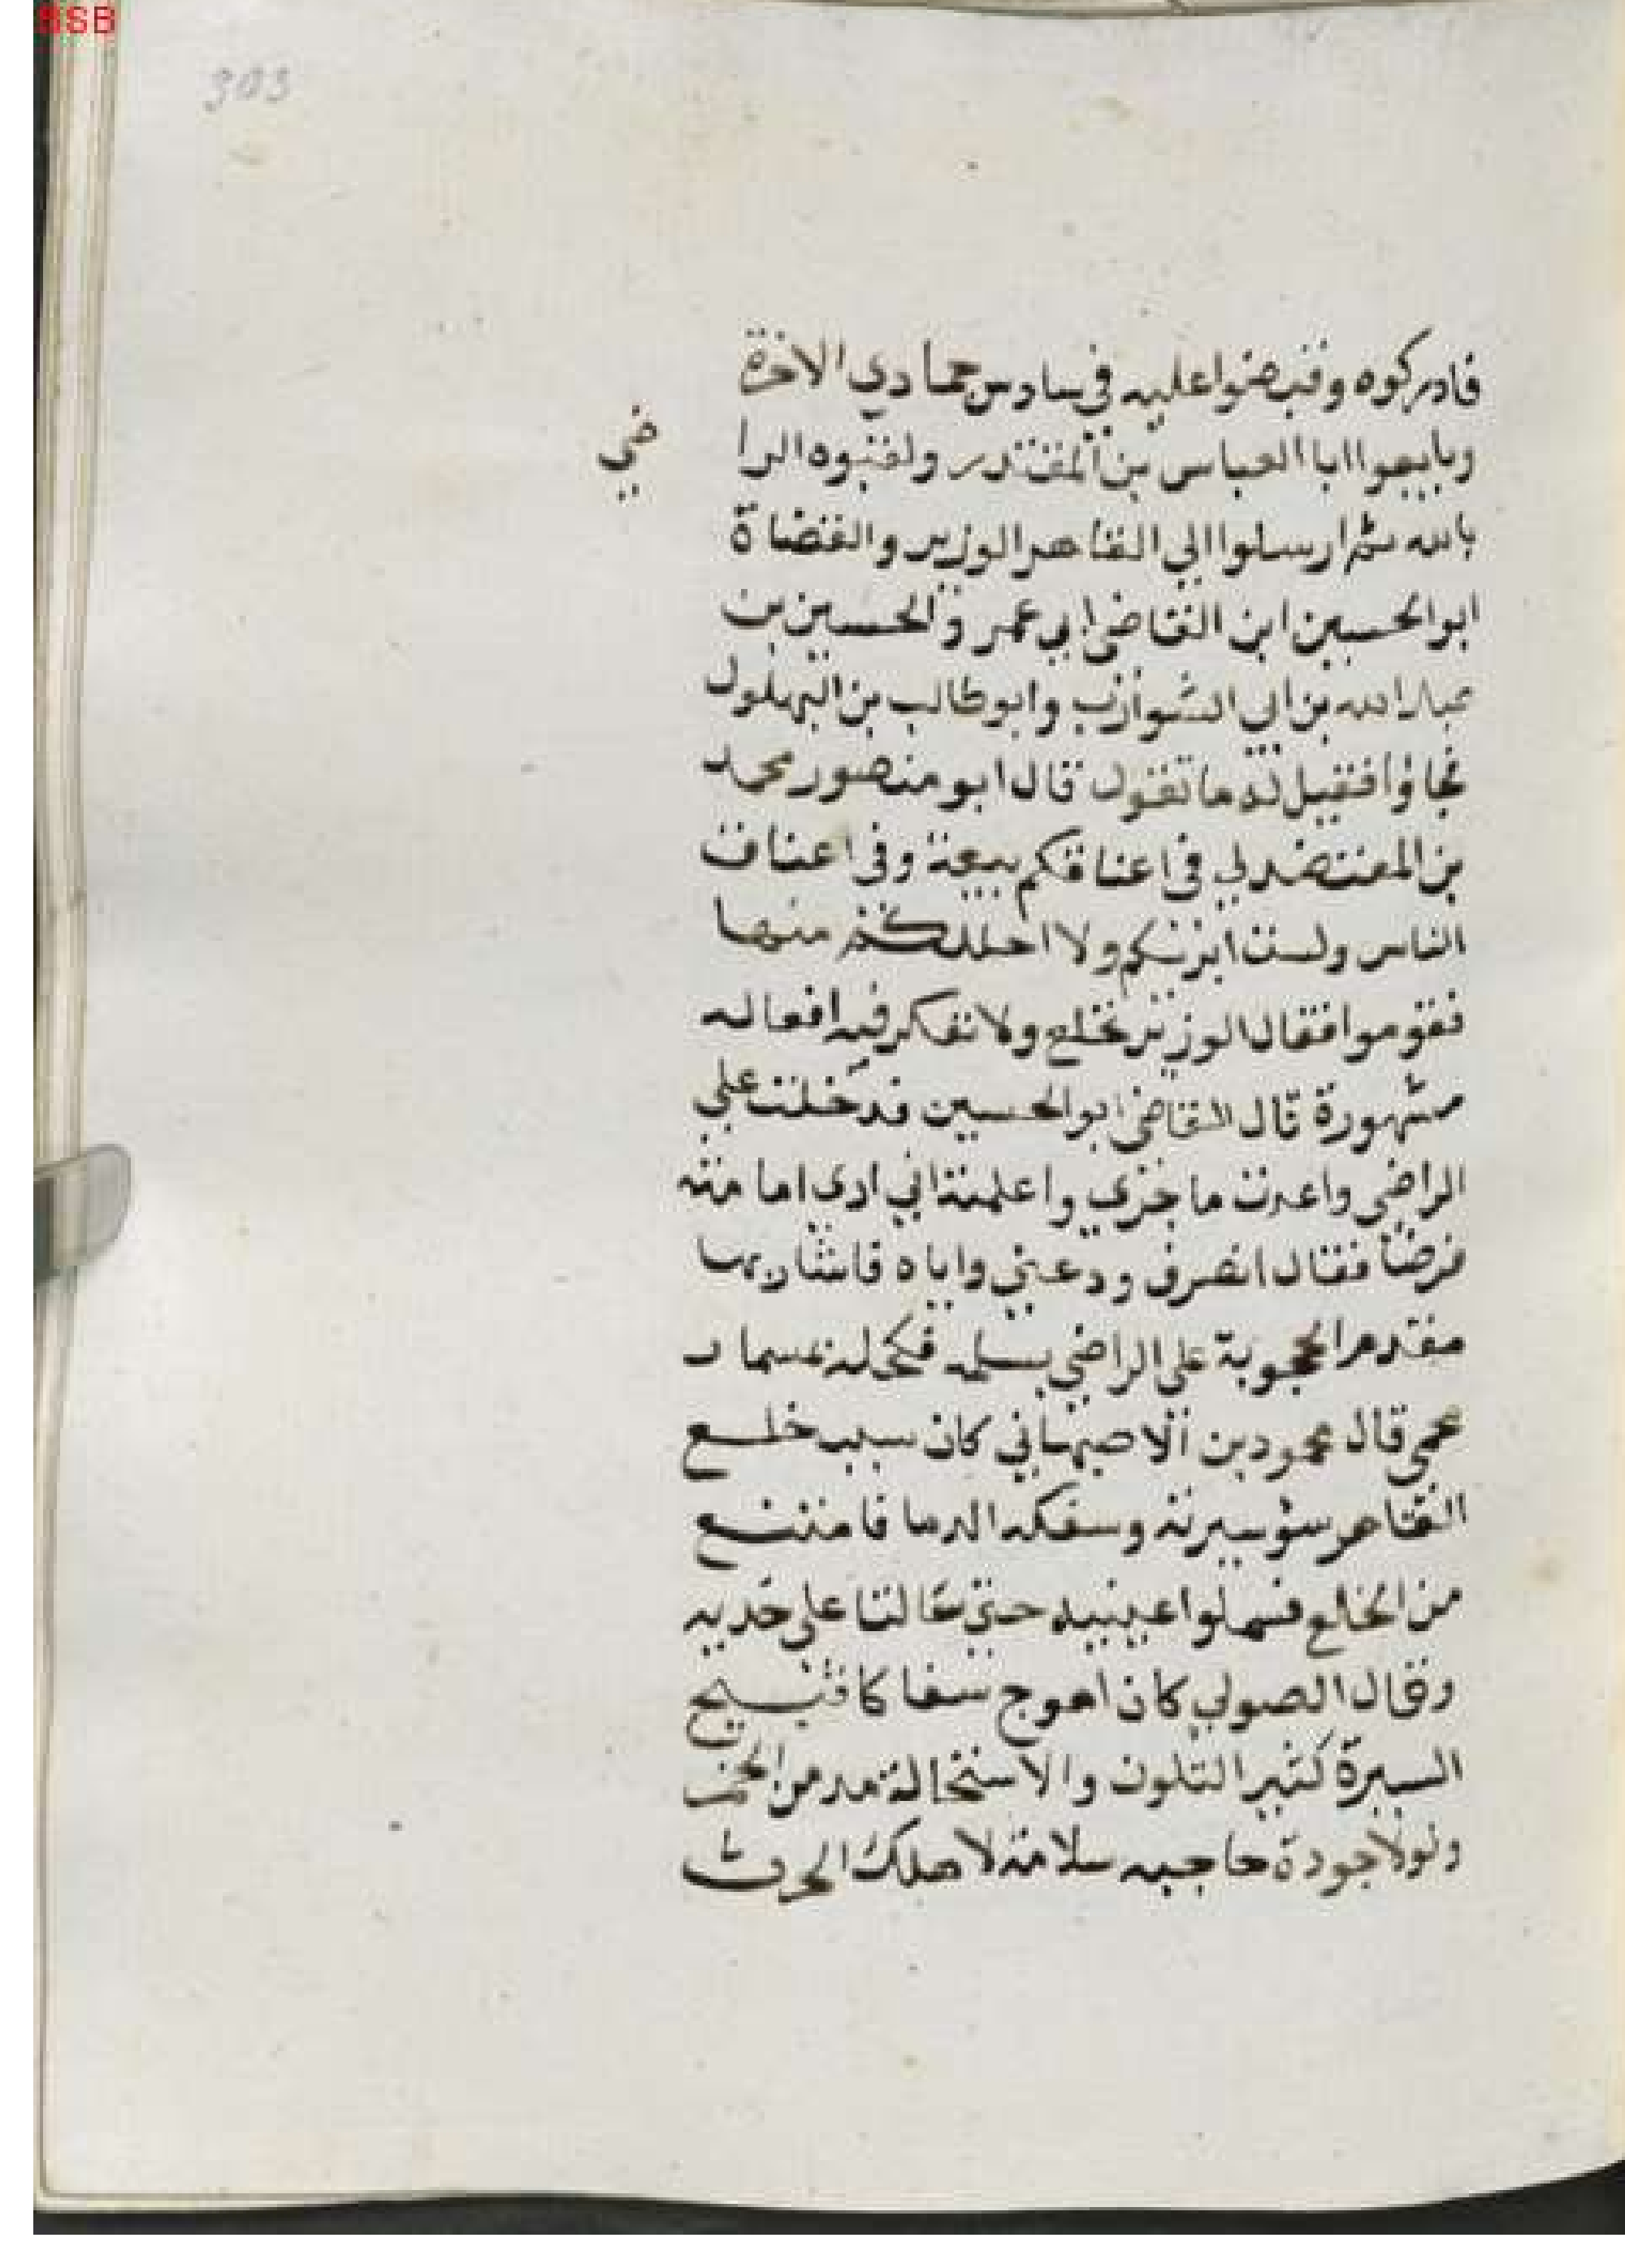 303
فادركوه وقبضوا عليه في سادس جمادي الاخرة
وبايعوا ابا العباس بن المقتدر ولقبوه الراضي
بالله ثم ارسلوا الي القاهر الوزير والقضاة
ابو الحسين ابن القاضي ابي عمر والحسين بن
عبد الله بن ابي الشوارب وابو طالب بن البهلول
فجاؤا فقيل له ما تقول قال ابو منصور محمد
بن المعتضد لي في اعناقكم بيعة وفي اعناق
الناس ولست ابرئكم ولا احللكم منها
فقوموا فقال الوزير نخلع ولا نفكر فيه افعاله
مشهورة قال القاضي ابو الحسين فدخلت علي
الراضي واعدت ما جري واعلمته اني اري امامته
فرضا فقال انصرف ودعني واياه فاشار
مقدم الحجرية علي الراضي بسمله فكحله بمسمار
عمي قال محمود بن الاصبهاني كان سبب خلع
القاهر سؤ سيرته وسفكه الدما فامتنع
من الخلع فسملوا عينيه حتي سالتا علي خديه
وقال الصولي كان اهوج سفاكا قبيح
السيرة كثير التلون والاستحالة مدمن الخمر
ولولا جودة حاجبه سلامة لاهلك الحرث